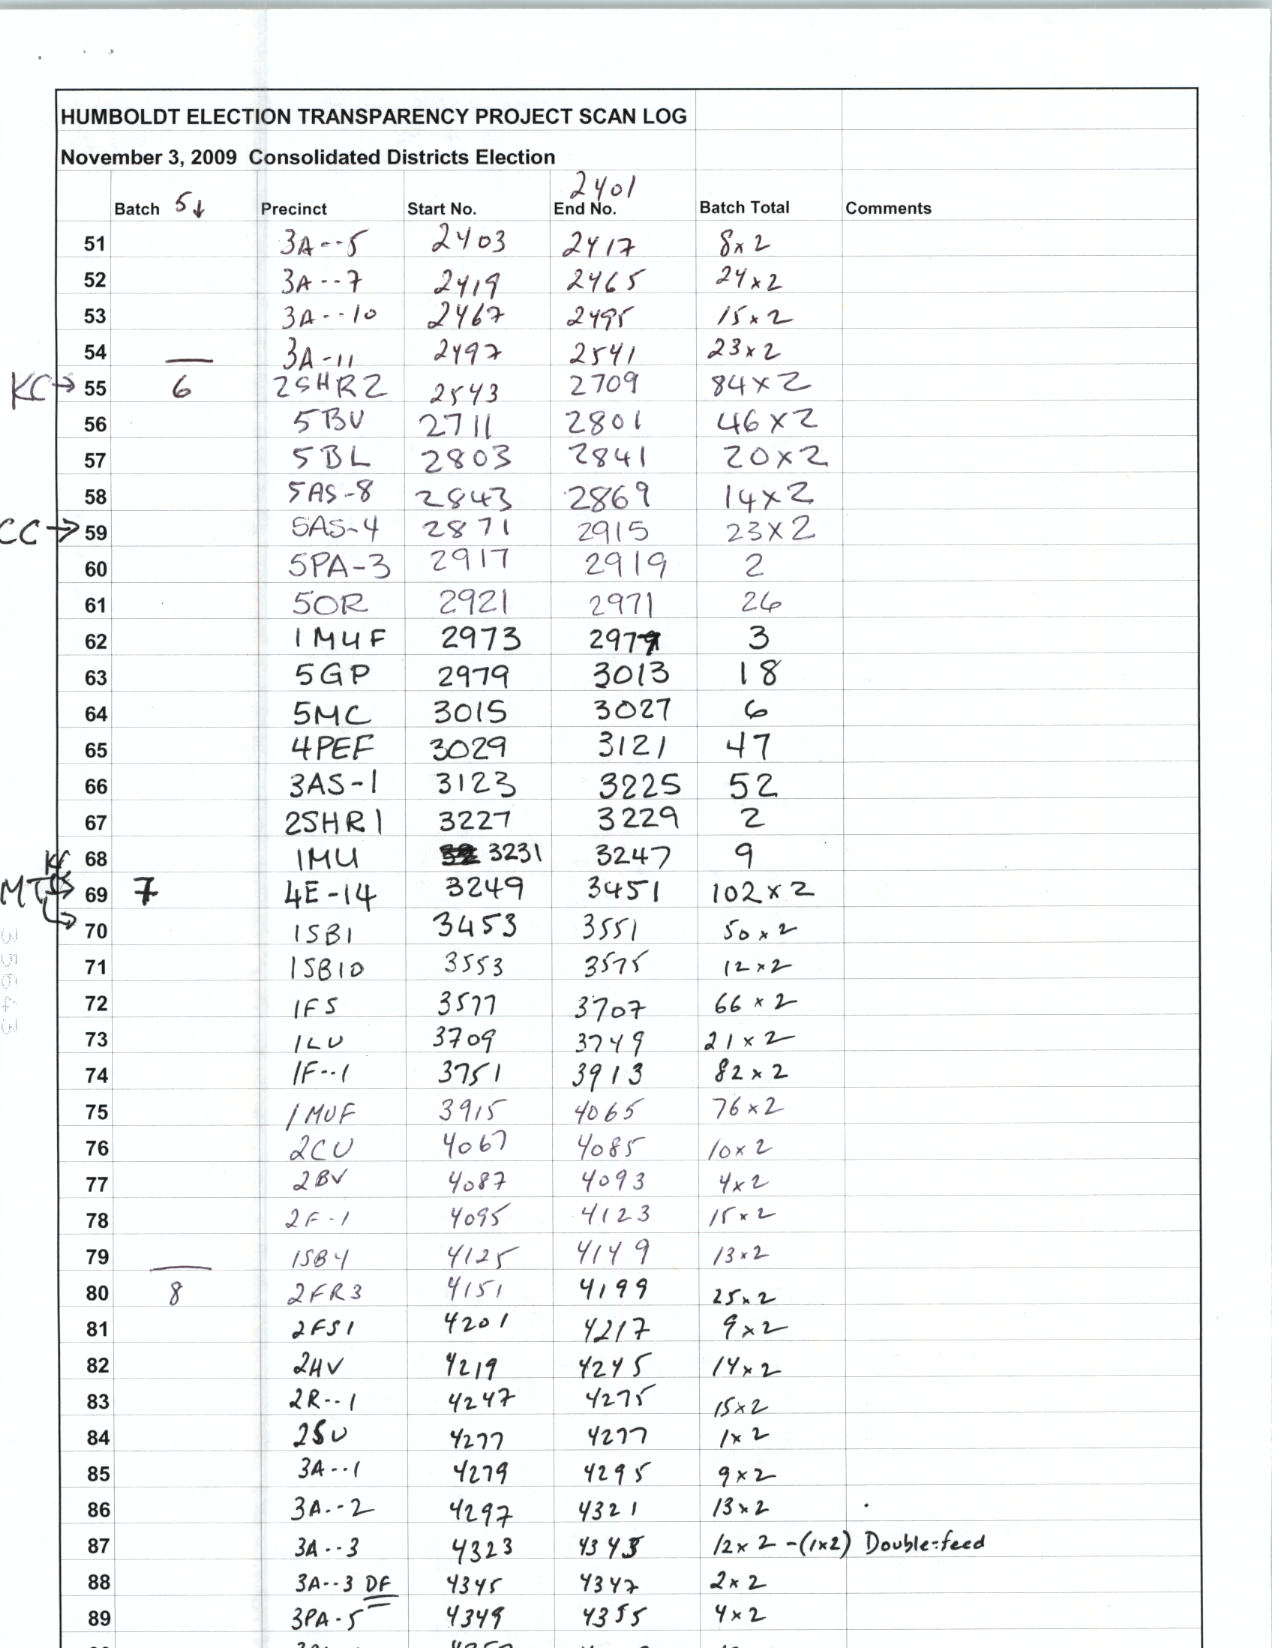 HUMBOLDT ELECTION TRANSPARENCY PROJECT SCAN LOG
November 3, 2009 Consolidated Districts Election
2401
Batch 5↓ Precinct Start No. End No. Batch Total Comments
51 3A--5 2403 2417 8x2
52 3A--7 2419 2465 24x2
53 3A--10 2467 2495 15x2
54 3A-11 2497 2541 23x2
KC→ 55 6 2SHR2 2543 2709 84x2
56 5BV 2711 2801 46x2
57 5BL 2803 2841 20x2
58 5AS-8 2843 2869 14x2
CC→ 59 5AS-4 2871 2915 23x2
60 5PA-3 2917 2919 2
61 5OR 2921 2971 26
62 1MUF 2973 2977 3
63 5GP 2979 3013 18
64 5MC 3015 3027 6
65 4PEF 3029 3121 47
66 3AS-1 3123 3225 52
67 2SHR1 3227 3229 2
68 1MU 3231 3247 9
KC
MT→ 69 7 4E-14 3249 3451 102x2
70 1SB1 3453 3551 50x2
71 1SB10 3553 3575 12x2
72 1FS 3577 3707 66x2
73 1LU 3709 3749 21x2
74 1F--1 3751 3913 82x2
75 1MUF 3915 4065 76x2
76 2CU 4067 4085 10x2
77 2BV 4087 4093 4x2
78 2F-1 4095 4123 15x2
79 1SB4 4125 4149 13x2
80 8 2FR3 4151 4199 25x2
81 2FS1 4201 4217 9x2
82 2HV 4219 4245 14x2
83 2R--1 4247 4275 15x2
84 2SU 4277 4277 1x2
85 3A--1 4279 4295 9x2
86 3A--2 4297 4321 13x2
87 3A--3 4323 4343 12x2-(1x2) Double-feed
88 3A--3 DF 4345 4347 2x2
89 3PA-5 4349 4355 4x2
35643